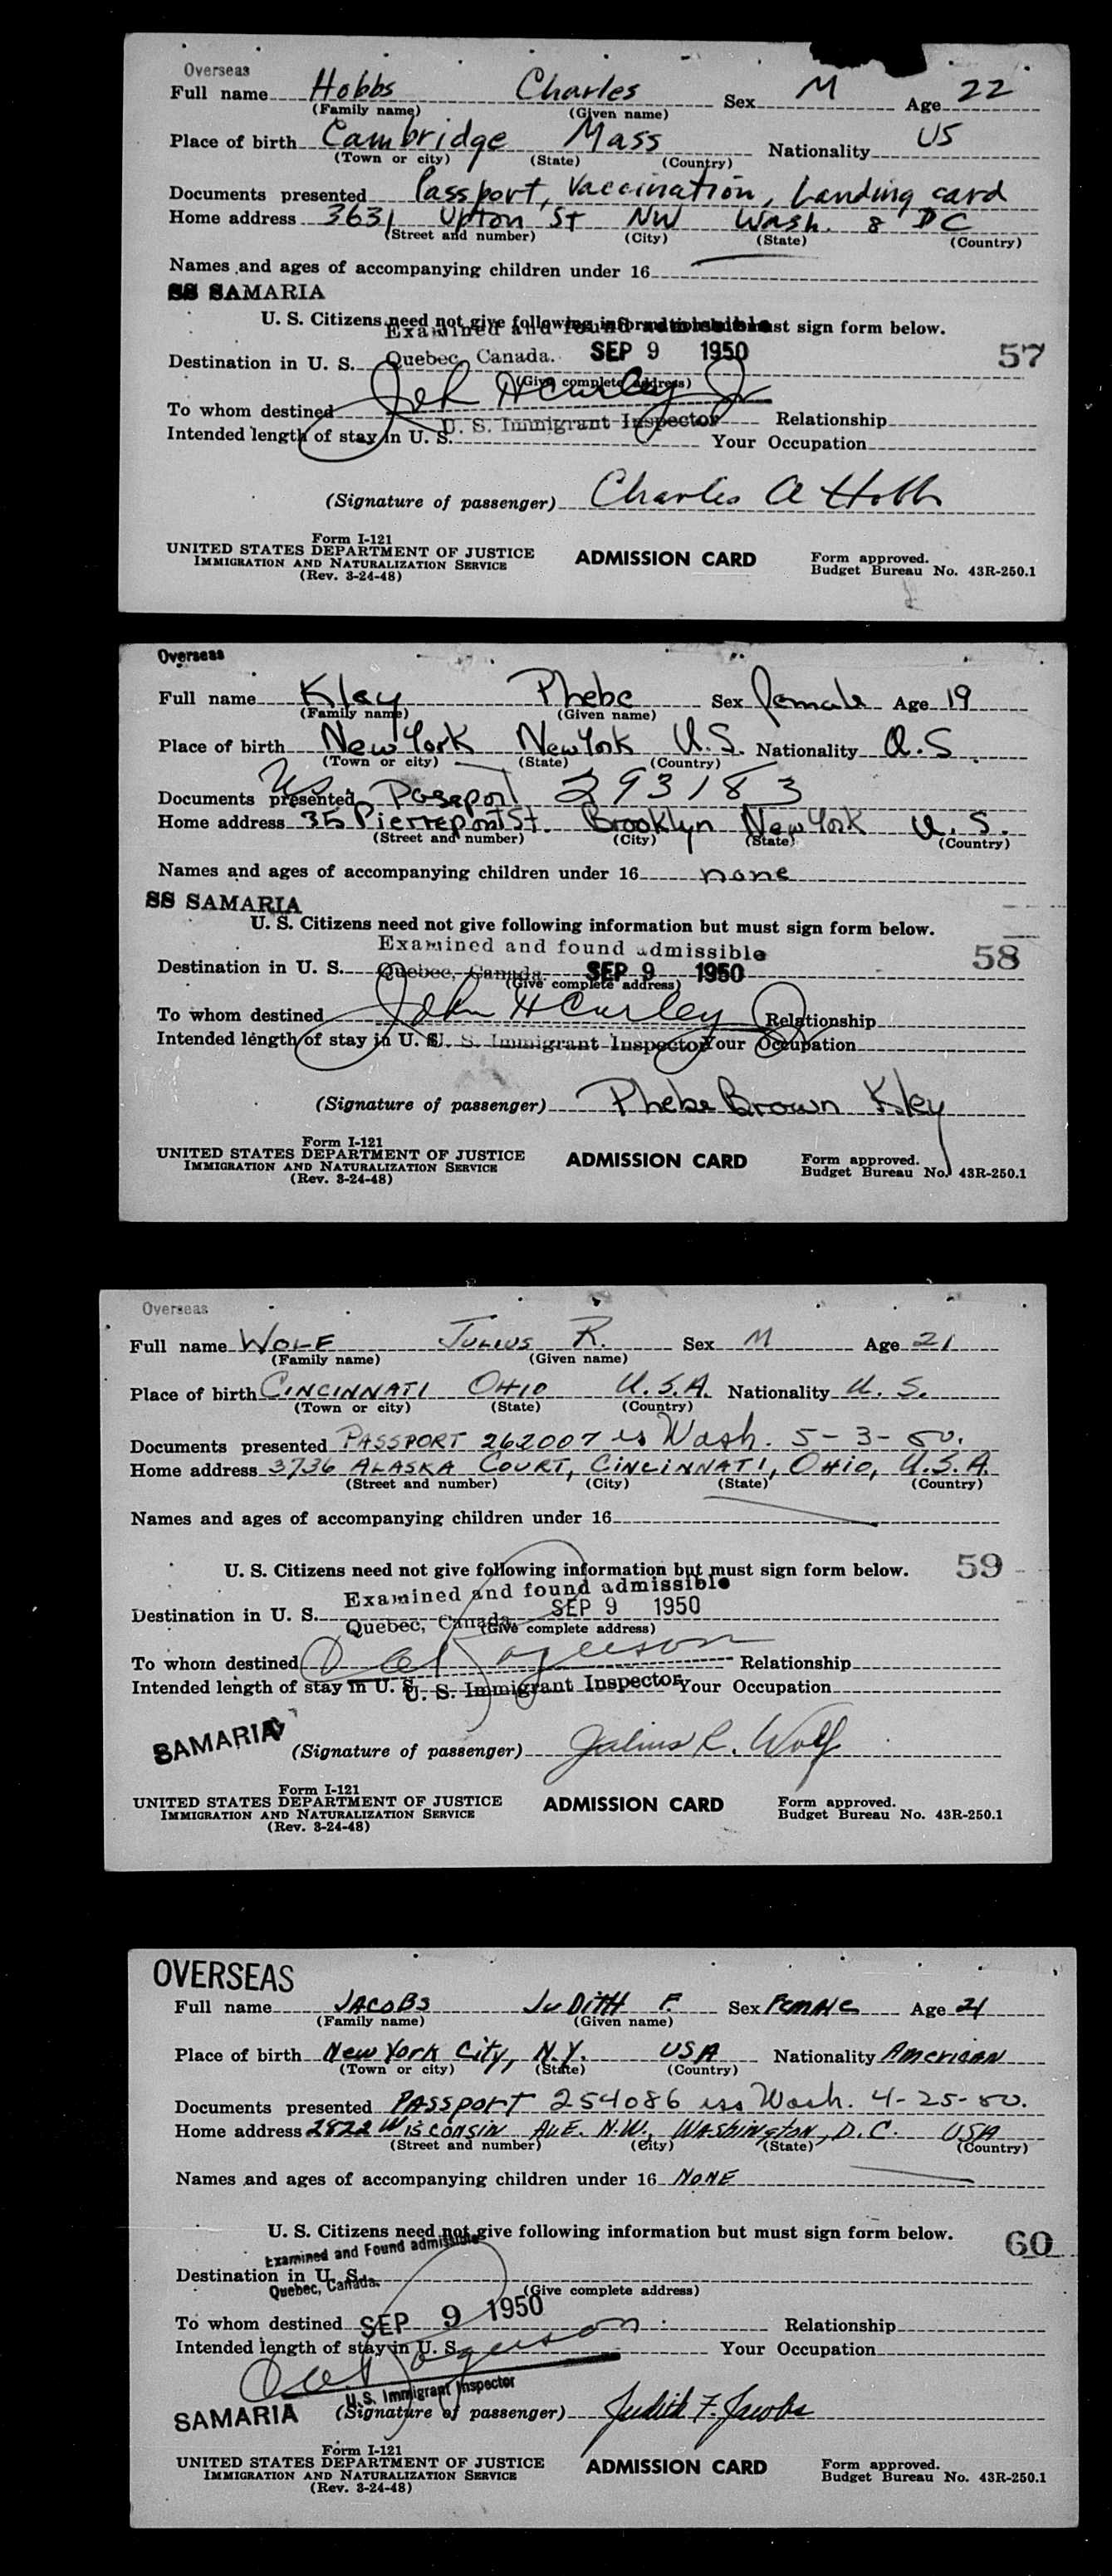 Overseas
Full name Hobbs Charles Sex M Age 22
(Family name) (Given name)
Place of birth Cambridge Mass Nationality US
(Town or city) (State) (Country)
Documents presented Passport, Vaccination, Landing card
Home address 3631 Upton St NW Wash. 8 DC
(Street and number) (City) (State) (Country)
Names and ages of accompanying children under 16
SS SAMARIA
U. S. Citizens need not give following information but must sign form below.
Examined and found admissible
Destination in U. S. Quebec, Canada. SEP 9 1950 57
(Give complete address)
John H Curley Jr
To whom destined Relationship
U. S. Immigrant Inspector
Intended length of stay in U. S. Your Occupation
(Signature of passenger) Charles A Hobbs
Form I-121
UNITED STATES DEPARTMENT OF JUSTICE ADMISSION CARD Form approved.
IMMIGRATION AND NATURALIZATION SERVICE Budget Bureau No. 43R-250.1
(Rev. 3-24-48)
Overseas
Full name Kley Phebe Sex female Age 19
(Family name) (Given name)
Place of birth New York New York U.S. Nationality U.S.
(Town or city) (State) (Country)
Documents presented US Passport 293183
Home address 35 Pierrepont St. Brooklyn New York U.S.
(Street and number) (City) (State) (Country)
Names and ages of accompanying children under 16 none
SS SAMARIA
U. S. Citizens need not give following information but must sign form below.
Examined and found admissible
Destination in U. S. Quebec, Canada. SEP 9 1950 58
(Give complete address)
John H Curley Jr
To whom destined Relationship
Intended length of stay in U. S. U. S. Immigrant Inspector Your Occupation
(Signature of passenger) Phebe Brown Kley
Form I-121
UNITED STATES DEPARTMENT OF JUSTICE ADMISSION CARD Form approved.
IMMIGRATION AND NATURALIZATION SERVICE Budget Bureau No. 43R-250.1
(Rev. 3-24-48)
Overseas
Full name WOLF JULIUS R. Sex M Age 21
(Family name) (Given name)
Place of birth CINCINNATI OHIO U.S.A. Nationality U.S.
(Town or city) (State) (Country)
Documents presented PASSPORT 262007 is Wash. 5-3-50.
Home address 3736 ALASKA COURT, CINCINNATI, OHIO, U.S.A.
(Street and number) (City) (State) (Country)
Names and ages of accompanying children under 16
U. S. Citizens need not give following information but must sign form below. 59
Examined and found admissible
Destination in U. S. SEP 9 1950
Quebec, Canada. (Give complete address)
To whom destined Relationship
Intended length of stay in U. S. U. S. Immigrant Inspector Your Occupation
SAMARIA (Signature of passenger) Julius R. Wolf
Form I-121
UNITED STATES DEPARTMENT OF JUSTICE ADMISSION CARD Form approved.
IMMIGRATION AND NATURALIZATION SERVICE Budget Bureau No. 43R-250.1
(Rev. 3-24-48)
OVERSEAS
Full name JACOBS JUDITH F. Sex Female Age 21
(Family name) (Given name)
Place of birth New York City, N.Y. USA Nationality American
(Town or city) (State) (Country)
Documents presented PASSPORT 254086 iss Wash. 4-25-50.
Home address 2822 Wisconsin Ave. N.W., Washington, D.C. USA
(Street and number) (City) (State) (Country)
Names and ages of accompanying children under 16 NONE
U. S. Citizens need not give following information but must sign form below. 60
Examined and Found admissible
Destination in U. S.
Quebec, Canada. (Give complete address)
To whom destined SEP 9 1950 Relationship
Intended length of stay in U. S. Your Occupation
U.S. Immigrant Inspector
SAMARIA (Signature of passenger) Judith F. Jacobs
Form I-121
UNITED STATES DEPARTMENT OF JUSTICE ADMISSION CARD Form approved.
IMMIGRATION AND NATURALIZATION SERVICE Budget Bureau No. 43R-250.1
(Rev. 3-24-48)